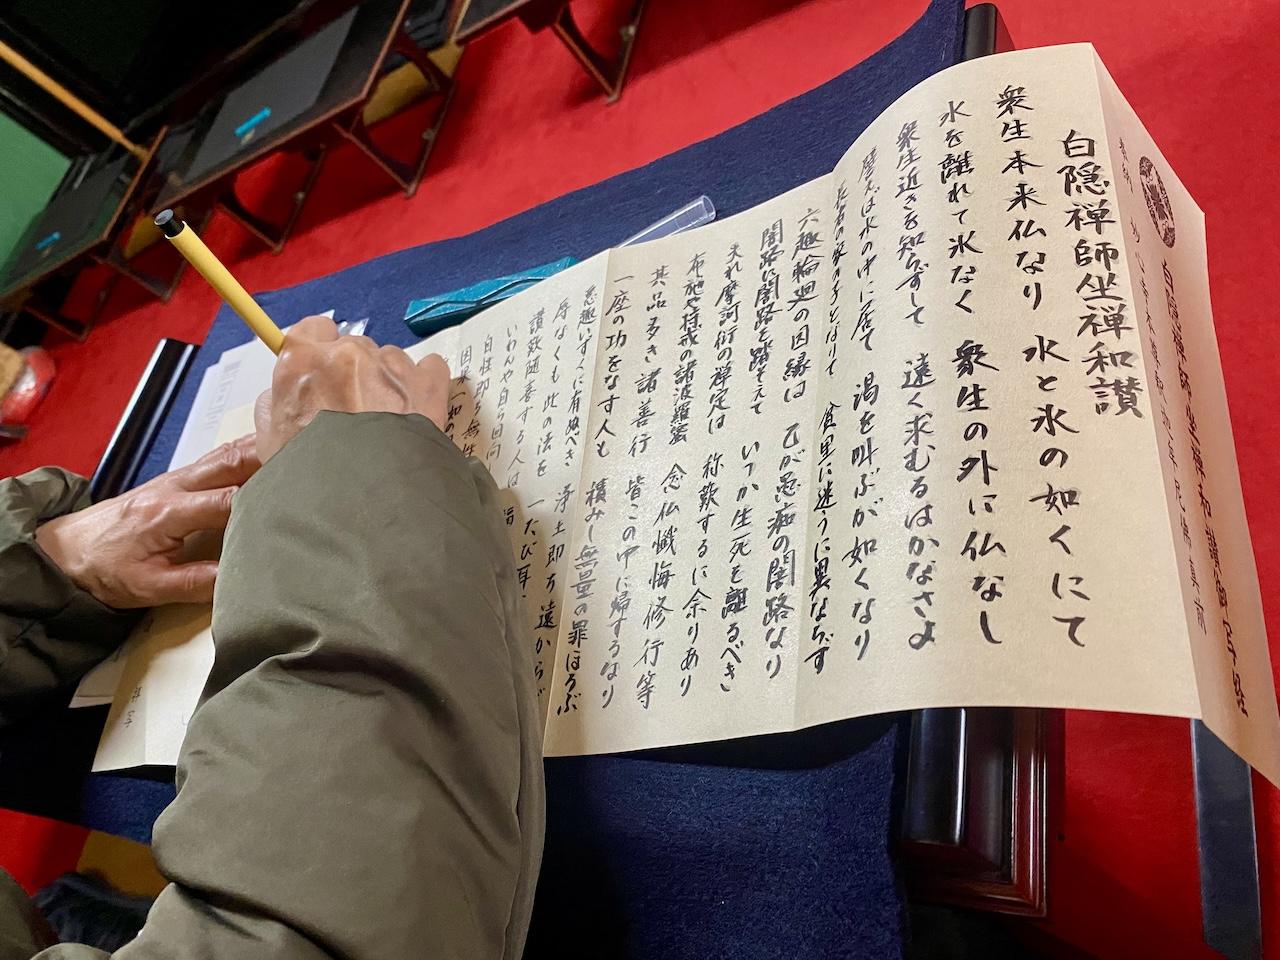 白隠禅師坐禅和讃
衆生本来仏なり 水と氷の如くにて
水を離れて氷なく 衆生の外に仏なし
衆生近きを知らずして 遠く求むるはかなさよ
譬えば水の中に居て 渇を叫ぶが如くなり
長者の家の子となりて 貧里に迷うに異ならず
六趣輪廻の因縁は 己が愚痴の闇路なり
闇路に闇路を踏そえて いつか生死を離るべき
夫れ摩訶衍の禅定は 称歎するに余りあり
布施や持戒の諸波羅蜜 念仏懺悔修行等
其品多き諸善行 皆この中に帰するなり
一座の功をなす人も 積みし無量の罪ほろぶ
悪趣いずくに有ぬべき 浄土即ち遠からず
辱なくも此の法を 一たび耳
讃歎随喜する人は 福
いわんや自ら回向
自性即ち無性
因果一如の